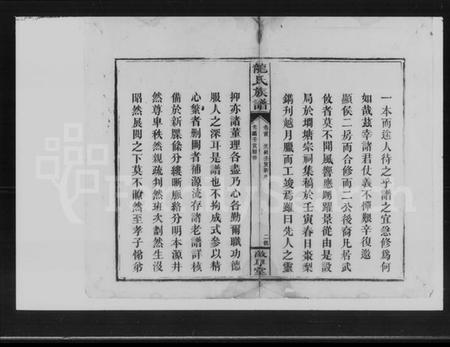 一本而途人待之乎譜之宜急修為何
如哉茲幸諸君仗義不憚艱辛復邀
顯侯二房而合修而二公後裔凡居武
攸者莫不聞風響應踴躍景從由是設
局於壋塘宗祠集稿於壬寅春日棗梨
鐫刊越月臘而工竣焉雖曰先人之靈
龍氏族譜
卷首
敵尊堂
抑亦諸董理各盡乃心各勤爾職功德
服人之深耳是譜也不拘成式參以精
心繁者刪闕者補源流存諸老譜詳核
備於新牒條分縷晰脈絡分明本源井
然尊卑秩然親疏判然班次劃然生沒
昭然展閱之下莫不瞭然至孝子悌弟